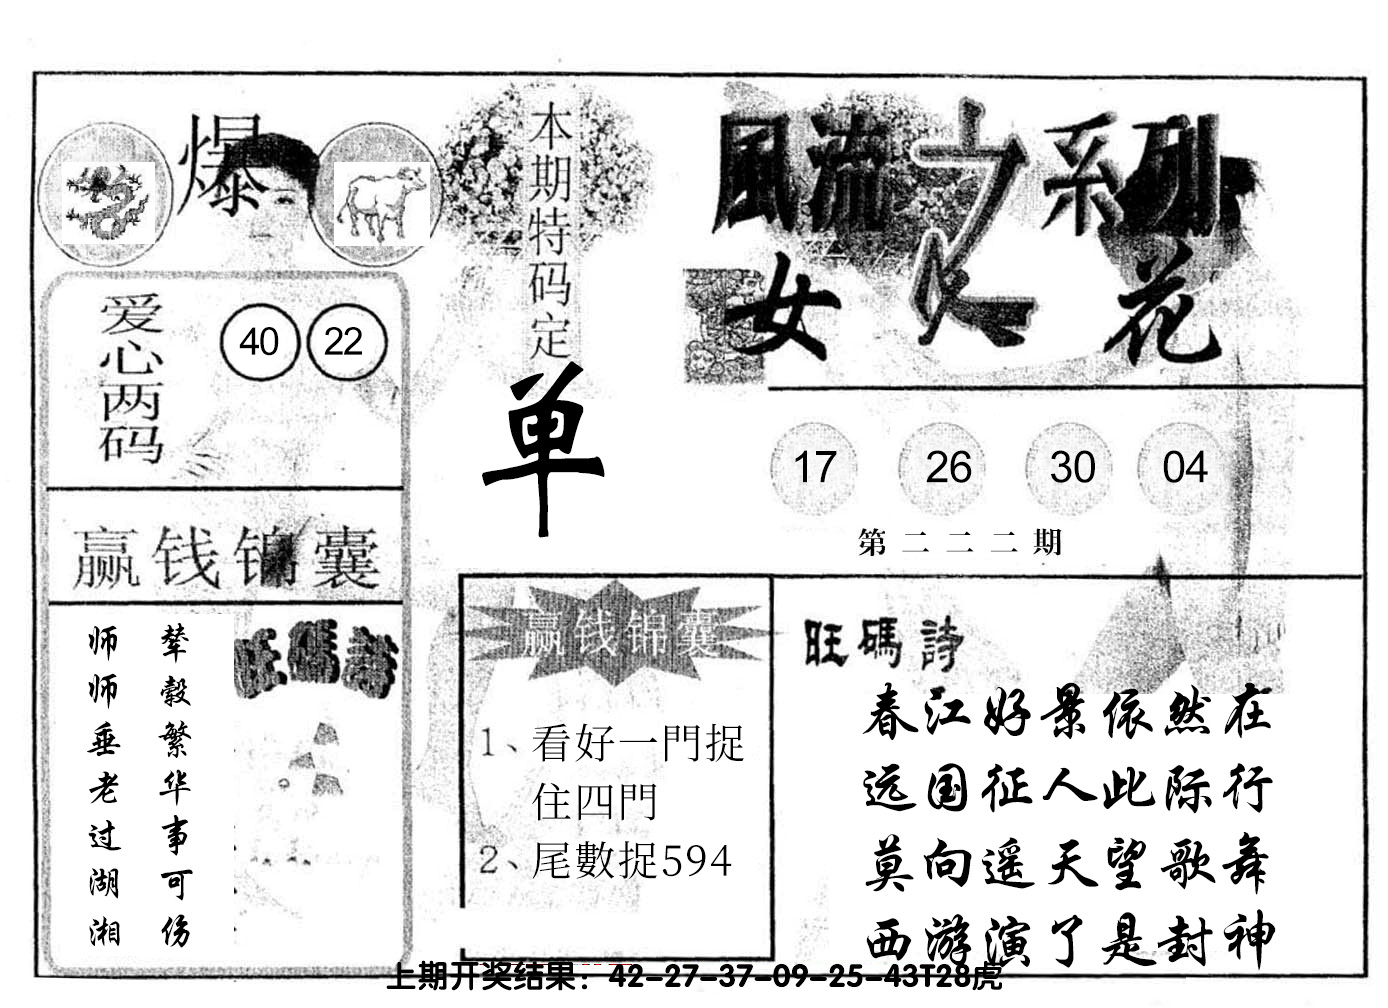 爆
本期特码定
单
風流之系列
女人花
爱心两码
40 22
17 26 30 04
第二二二期
赢钱锦囊
辇毂繁华事可伤
师师垂老过湖湘
旺碼詩
赢钱锦囊
1、看好一門捉
住四門
2、尾數捉594
旺碼詩
春江好景依然在
远国征人此际行
莫向遥天望歌舞
西游演了是封神
上期开奖结果：42-27-37-09-25-43T28虎